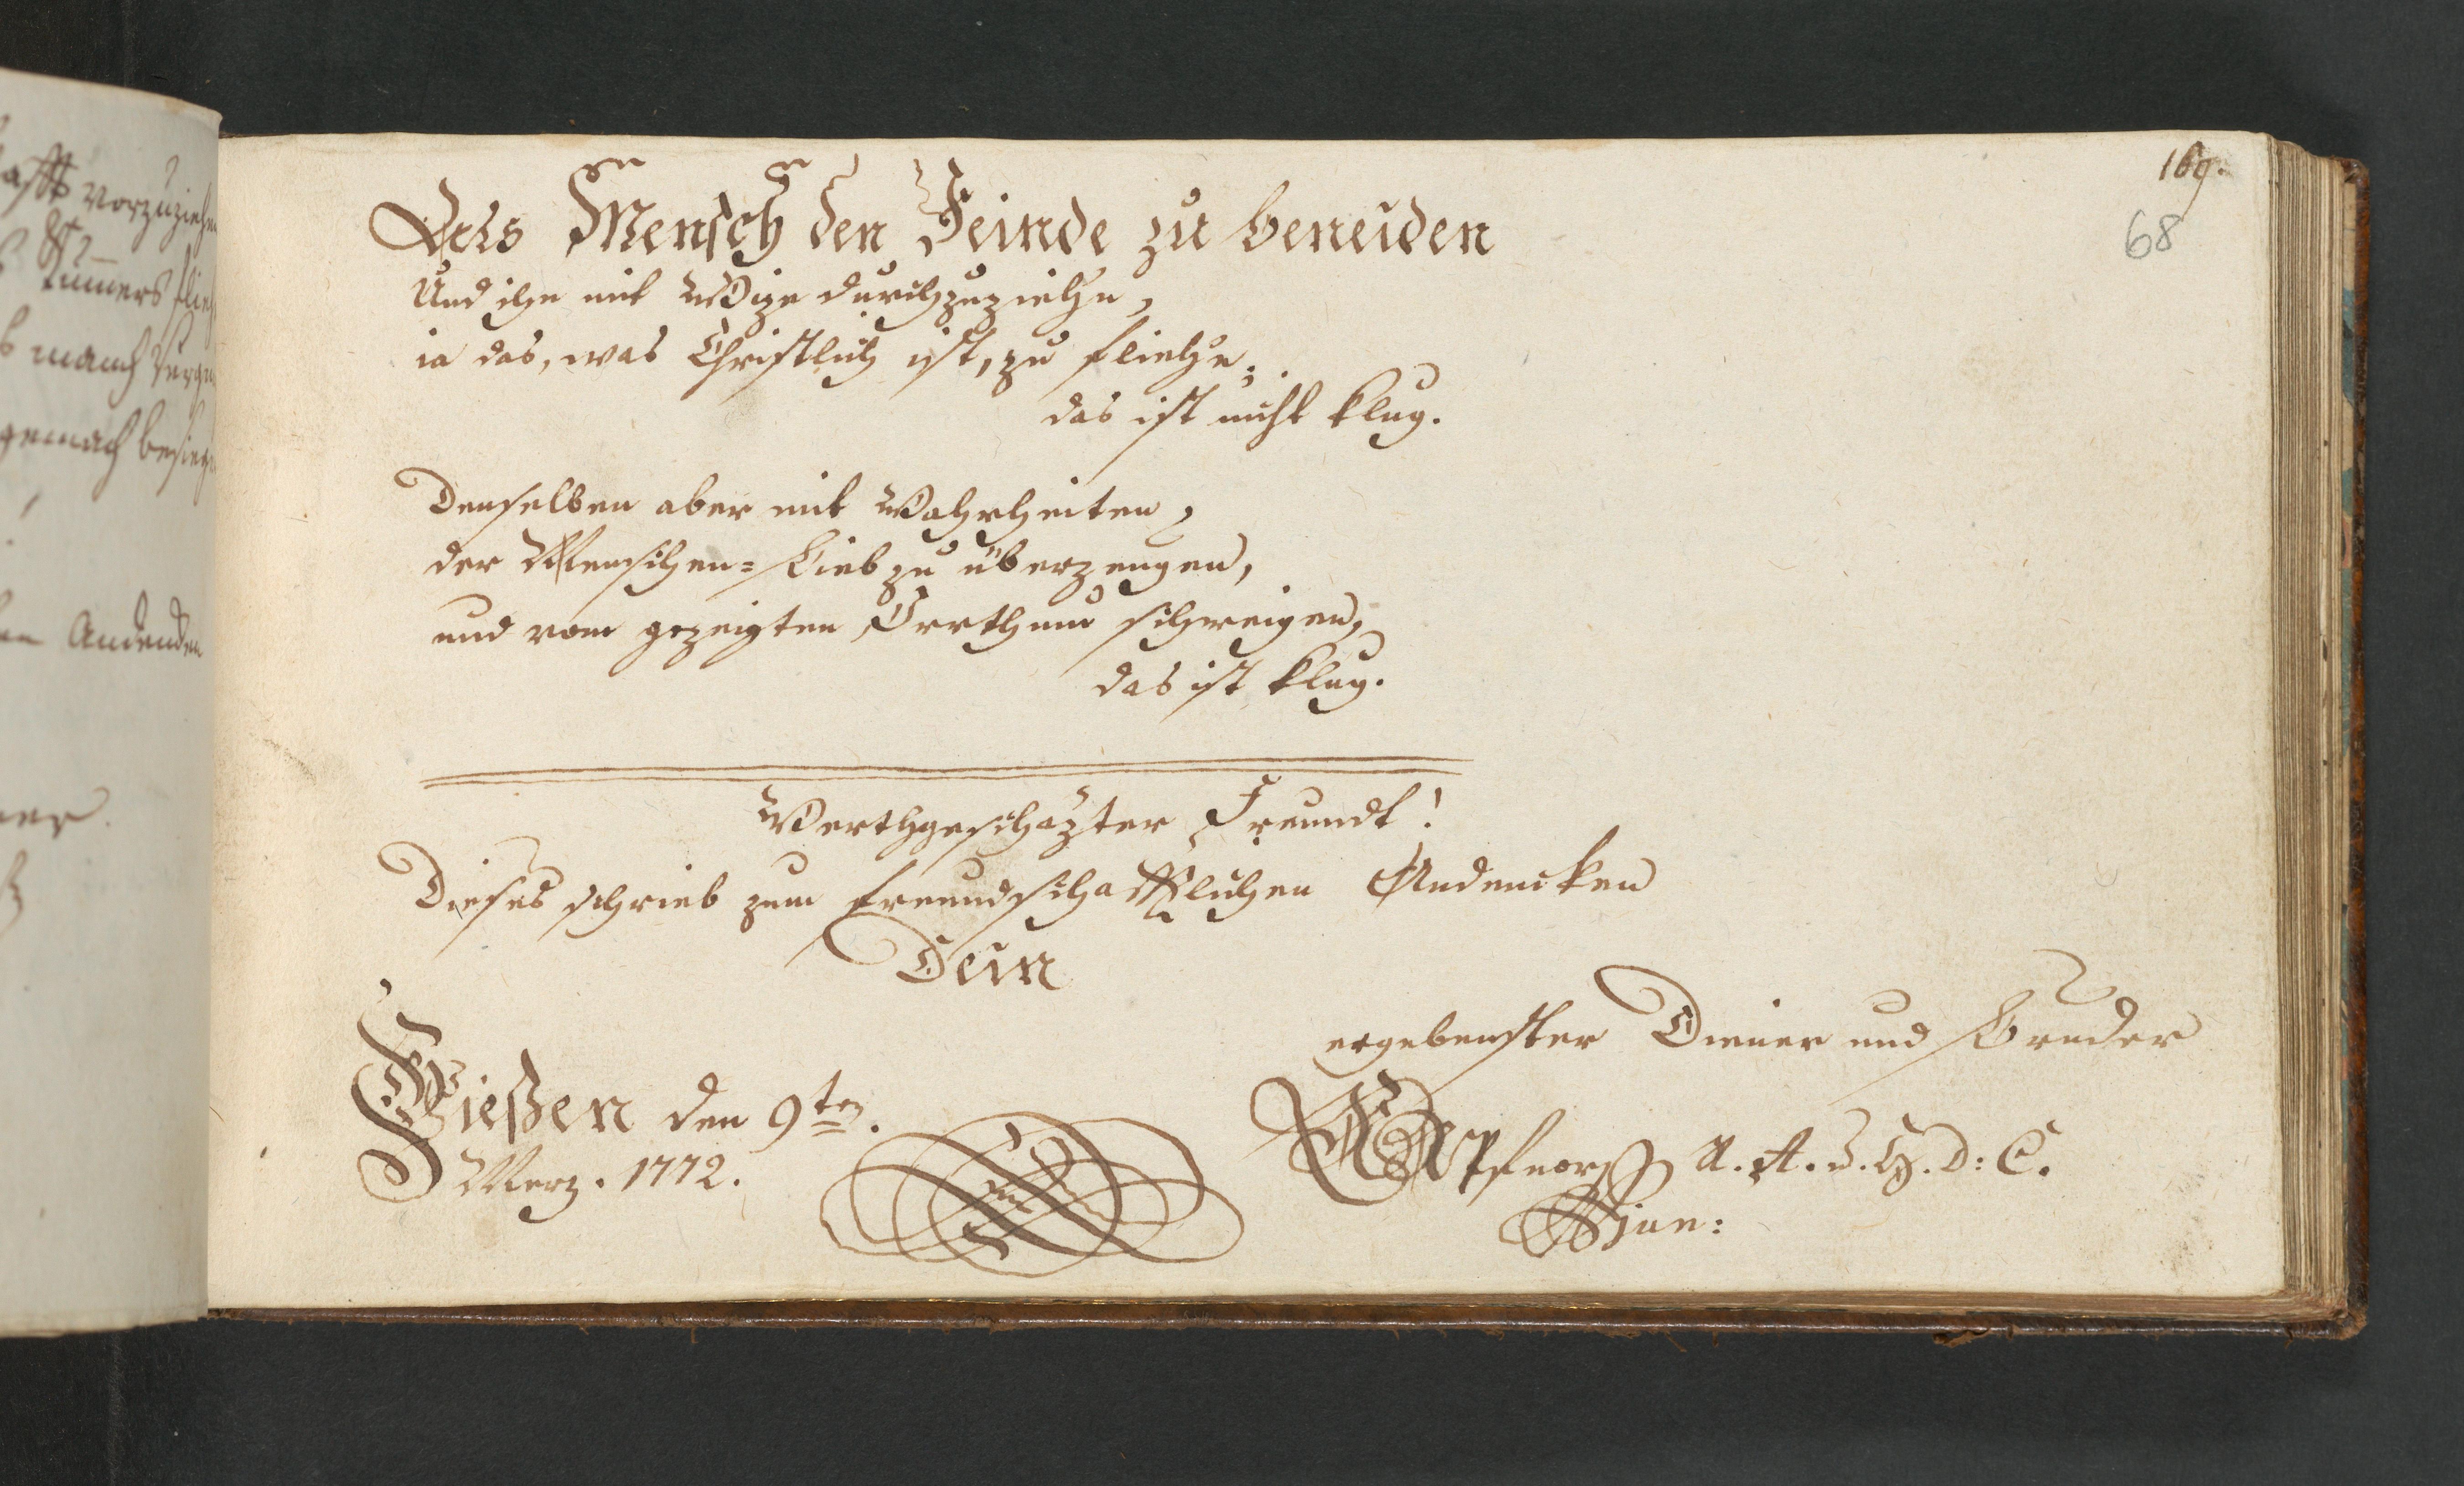 169.
68
Als Mensch den Feinde zu beneiden
Und ihn mit Wize durchzuziehn,
ia das, was Christlich ist, zu fliehn;
das ist nicht klug.
Denselben aber mit Wahrheiten,
der Menschen-Lieb zu überzeugen,
und vom gezeigten Irrthum schweigen,
das ist klug.
Werthgeschäzter Freundt!
Dieses schrieb zum freundschafftlichen Andencken
Dein
ergebenster Diener und Bruder
Gießen den 9ten.
Merz. 1772.